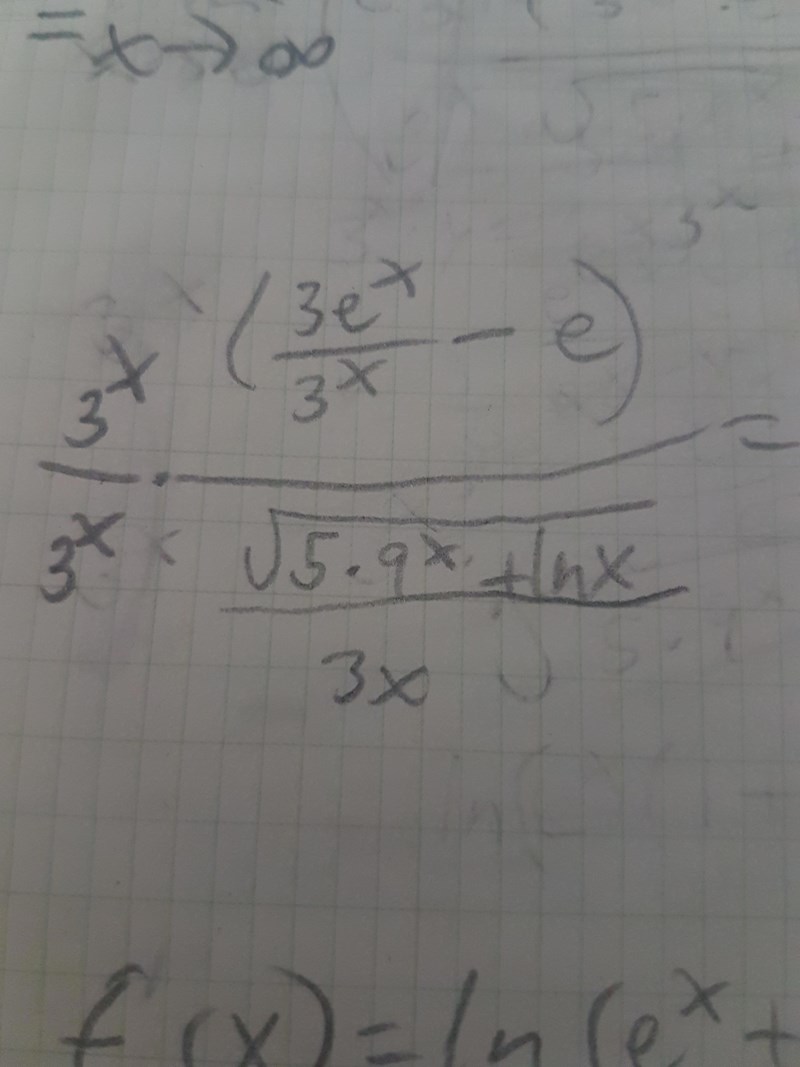 = x → ∞
3^x (3e^x / 3^x − e)
———— · ———————— =
3^x √5·9^x + ln x
3x
f(x) = ln(e^x +